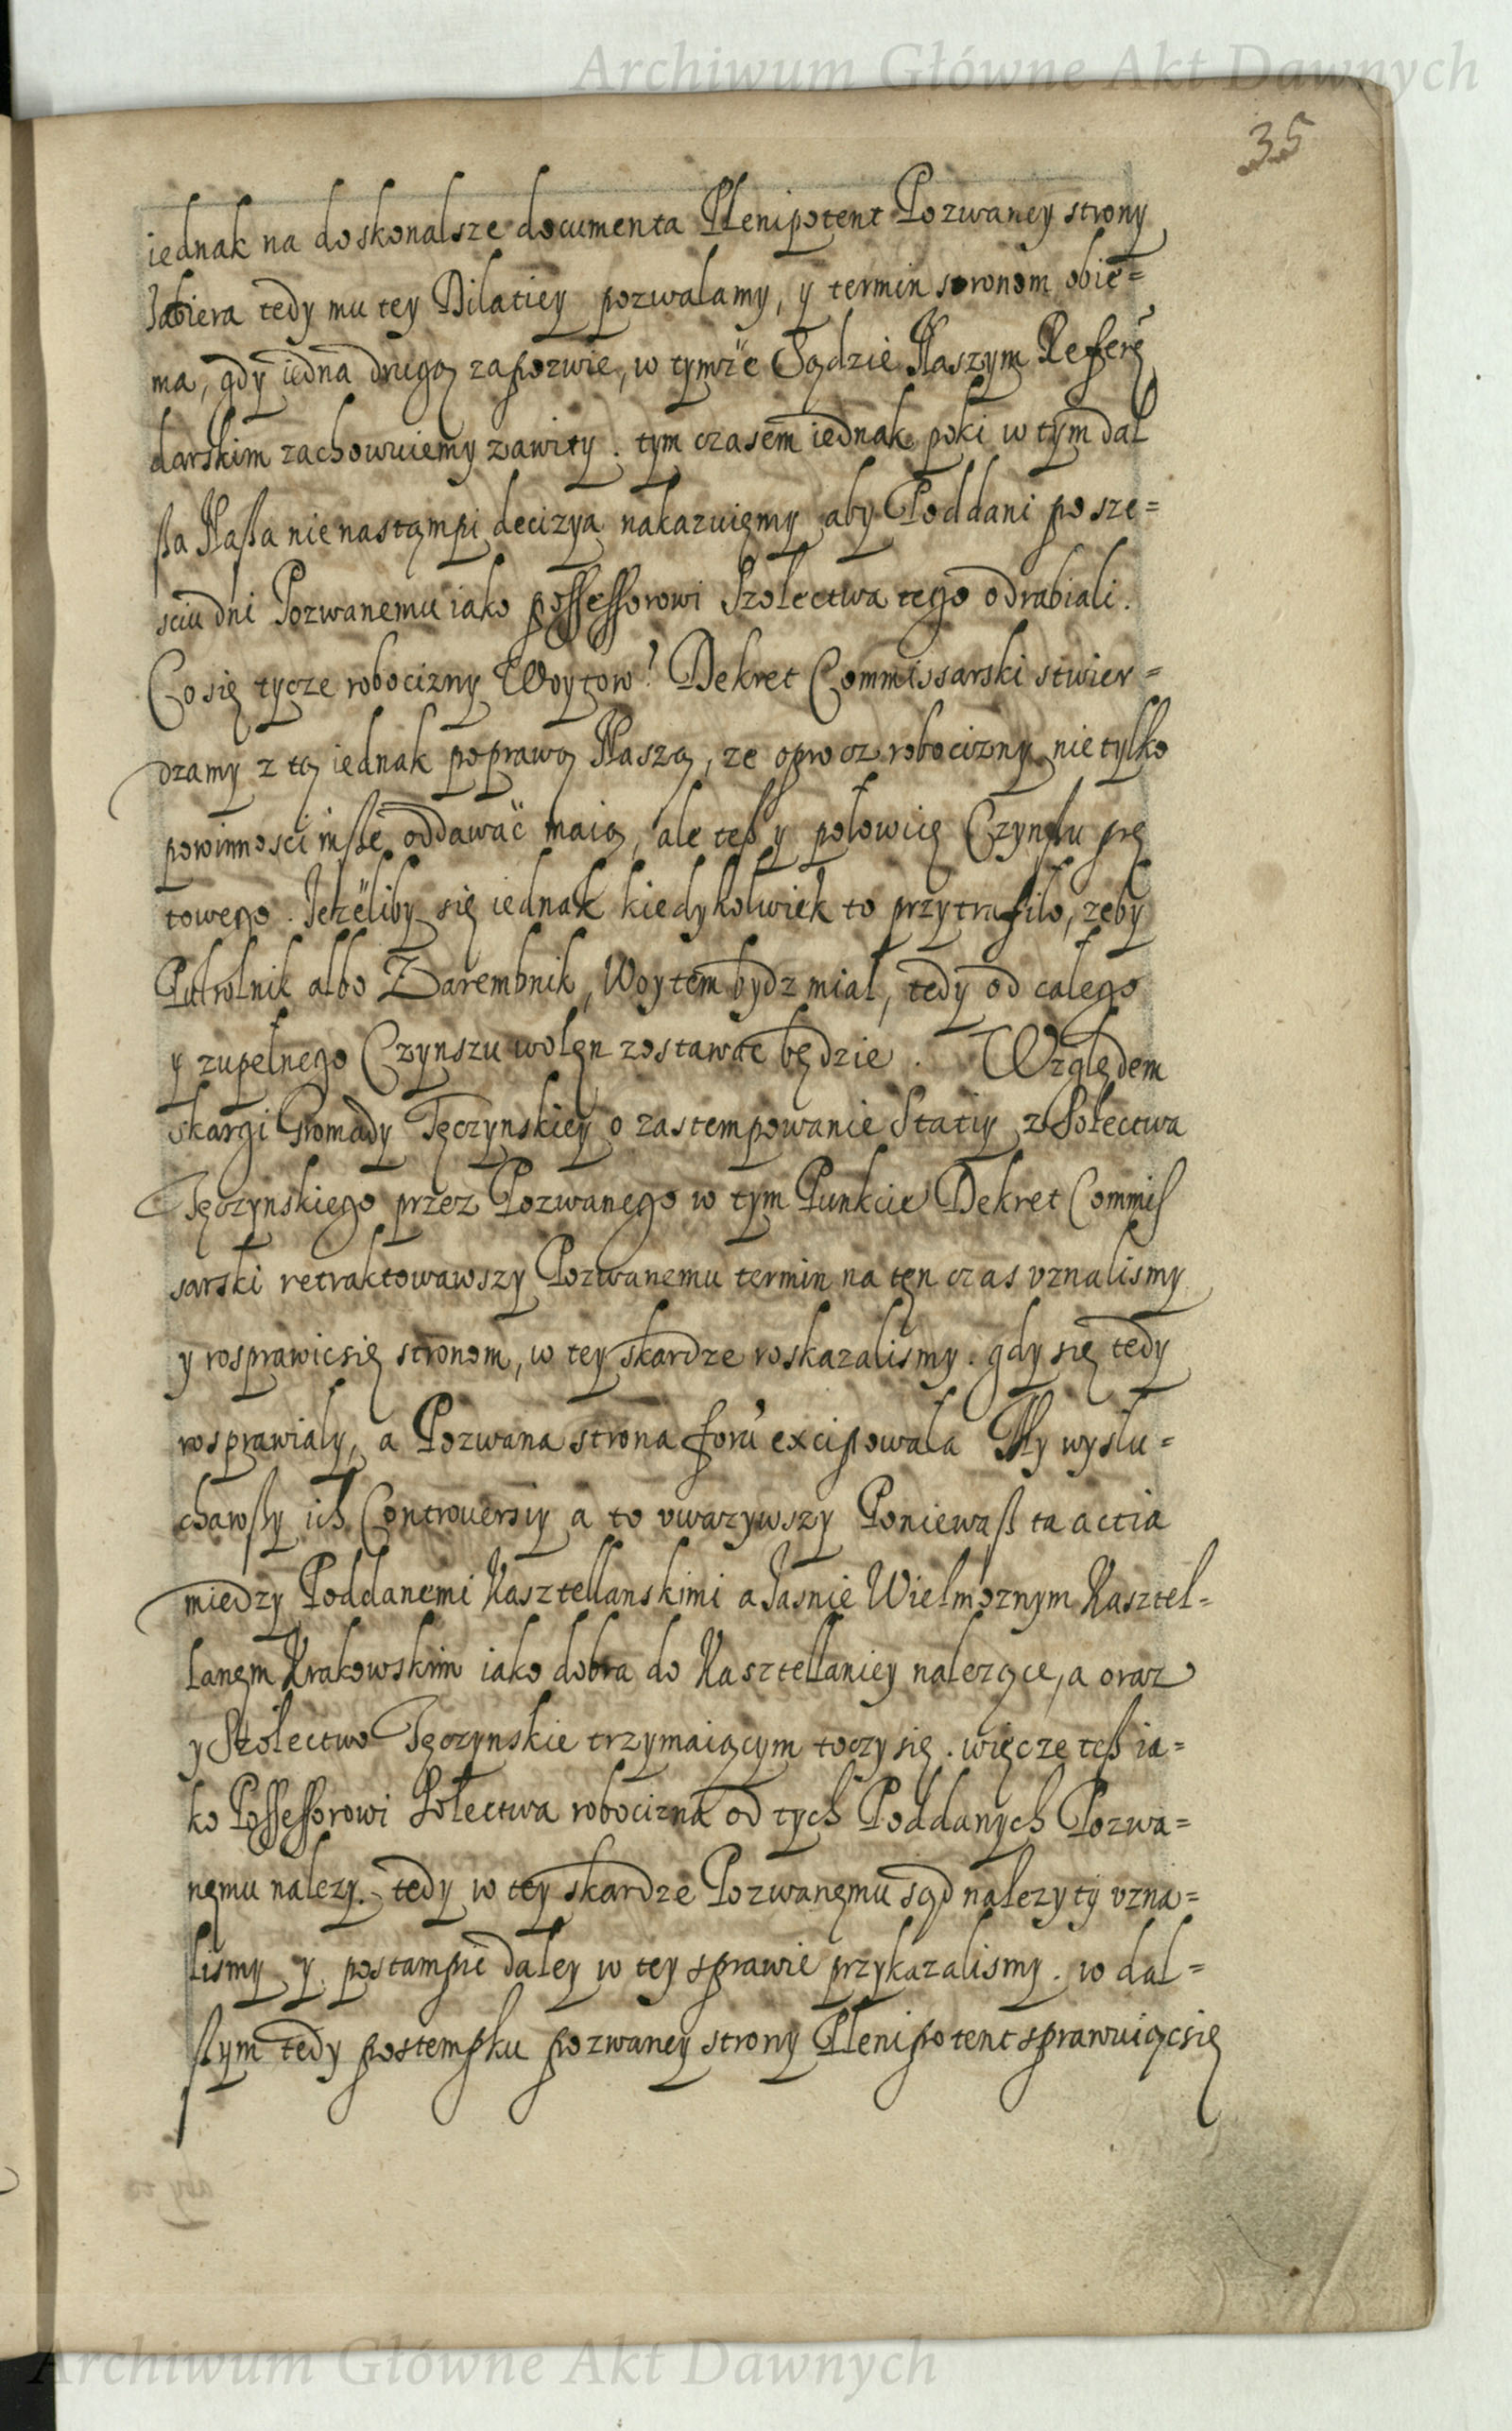 Archiwum Główne Akt Dawnych
35
iednak na doskonalsze documenta Plenipotent Pozwaney strony
zabiera tedy mu tey Dilatiey pozwalamy, y termin stronom obie=
ma, gdy iedna drugą zapozwie, w tymże Sądzie Naszym Referę
darskim zachowuiemy zawity. tym czasem iednak poki w tym dal
ßa Naßa nie nastąmpi decizya nakazuięmy aby Poddani po sze=
sciu dni Pozwanemu iako possessorowi Szolectwa tego odrabiali.
Co się tycze robocizny Woytow? Dekret Commissarski stwier=
dzamy z tą iednak poprawą Naszą, ze oprocz robocizny nie tylko
powinnosci inße oddawać maią, ale teß y połowicę Czynßu prę
towego. Jeżeliby się iednak kiedykolwiek to przytrafiło, zeby
Pułrolnik albo Zarembnik, Woytem bydz miał, tedy od całego
y zupełnego Czynszu wolęn zostawać będzie. Względem
skargi Gromady Tęczynskiey o zastempowanie Statiy z Sołectwa
Tęczynskiego przez Pozwanego w tym Punkcie Dekret Commis
sarski retraktowawszy Pozwanemu termin na tęn czas vznalismy
y rosprawic się stronom, w tey skardze roskazalismy. gdy się tedy
rosprawiały, a Pozwana strona forũ excipowała My wysłu=
chawßy ich Controversiy a to vwazywszy Poniewaß ta actia
miedzy Poddanemi Kasztellanskimi a Jasnie Wielmoznym Kasztel=
lanęm Krakowskim iako dobra do Kasztellaniey nalezące, a oraz
y Szolectwo Tęczynskie trzymaiącym toczy się. więc ze teß ia=
ko Possessorowi Sołectwa robocizna od tych Poddanych Pozwa=
nęmu nalezy. tedy w tey skardze Pozwanęmu sąd nalezyty vzna=
lismy y postampić daley w tey sprawie przykazalismy. w dal=
ßym tedy postempku pozwaney strony Plenipotent sprawuiąc się
Archiwum Główne Akt Dawnych